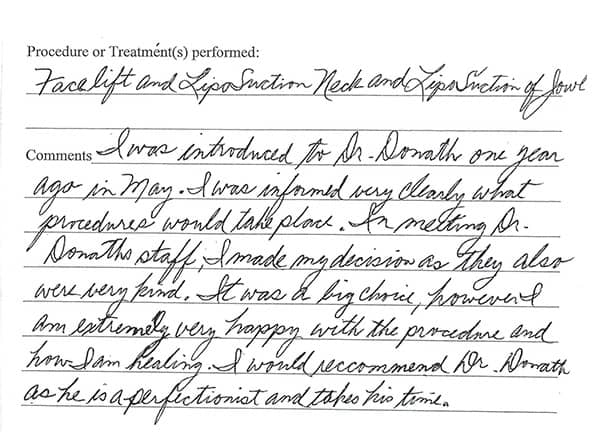 Procedure or Treatment(s) performed:
Facelift and LipoSuction Neck and LipoSuction of Jowl
Comments I was introduced to Dr. Donath one year
ago in May. I was informed very clearly what
procedures would take place. In meeting Dr.
Donaths staff, I made my decision as they also
were very kind. It was a big choice, however I
am extremely very happy with the procedure and
how I am healing. I would reccommend Dr. Donath
as he is a perfectionist and takes his time.